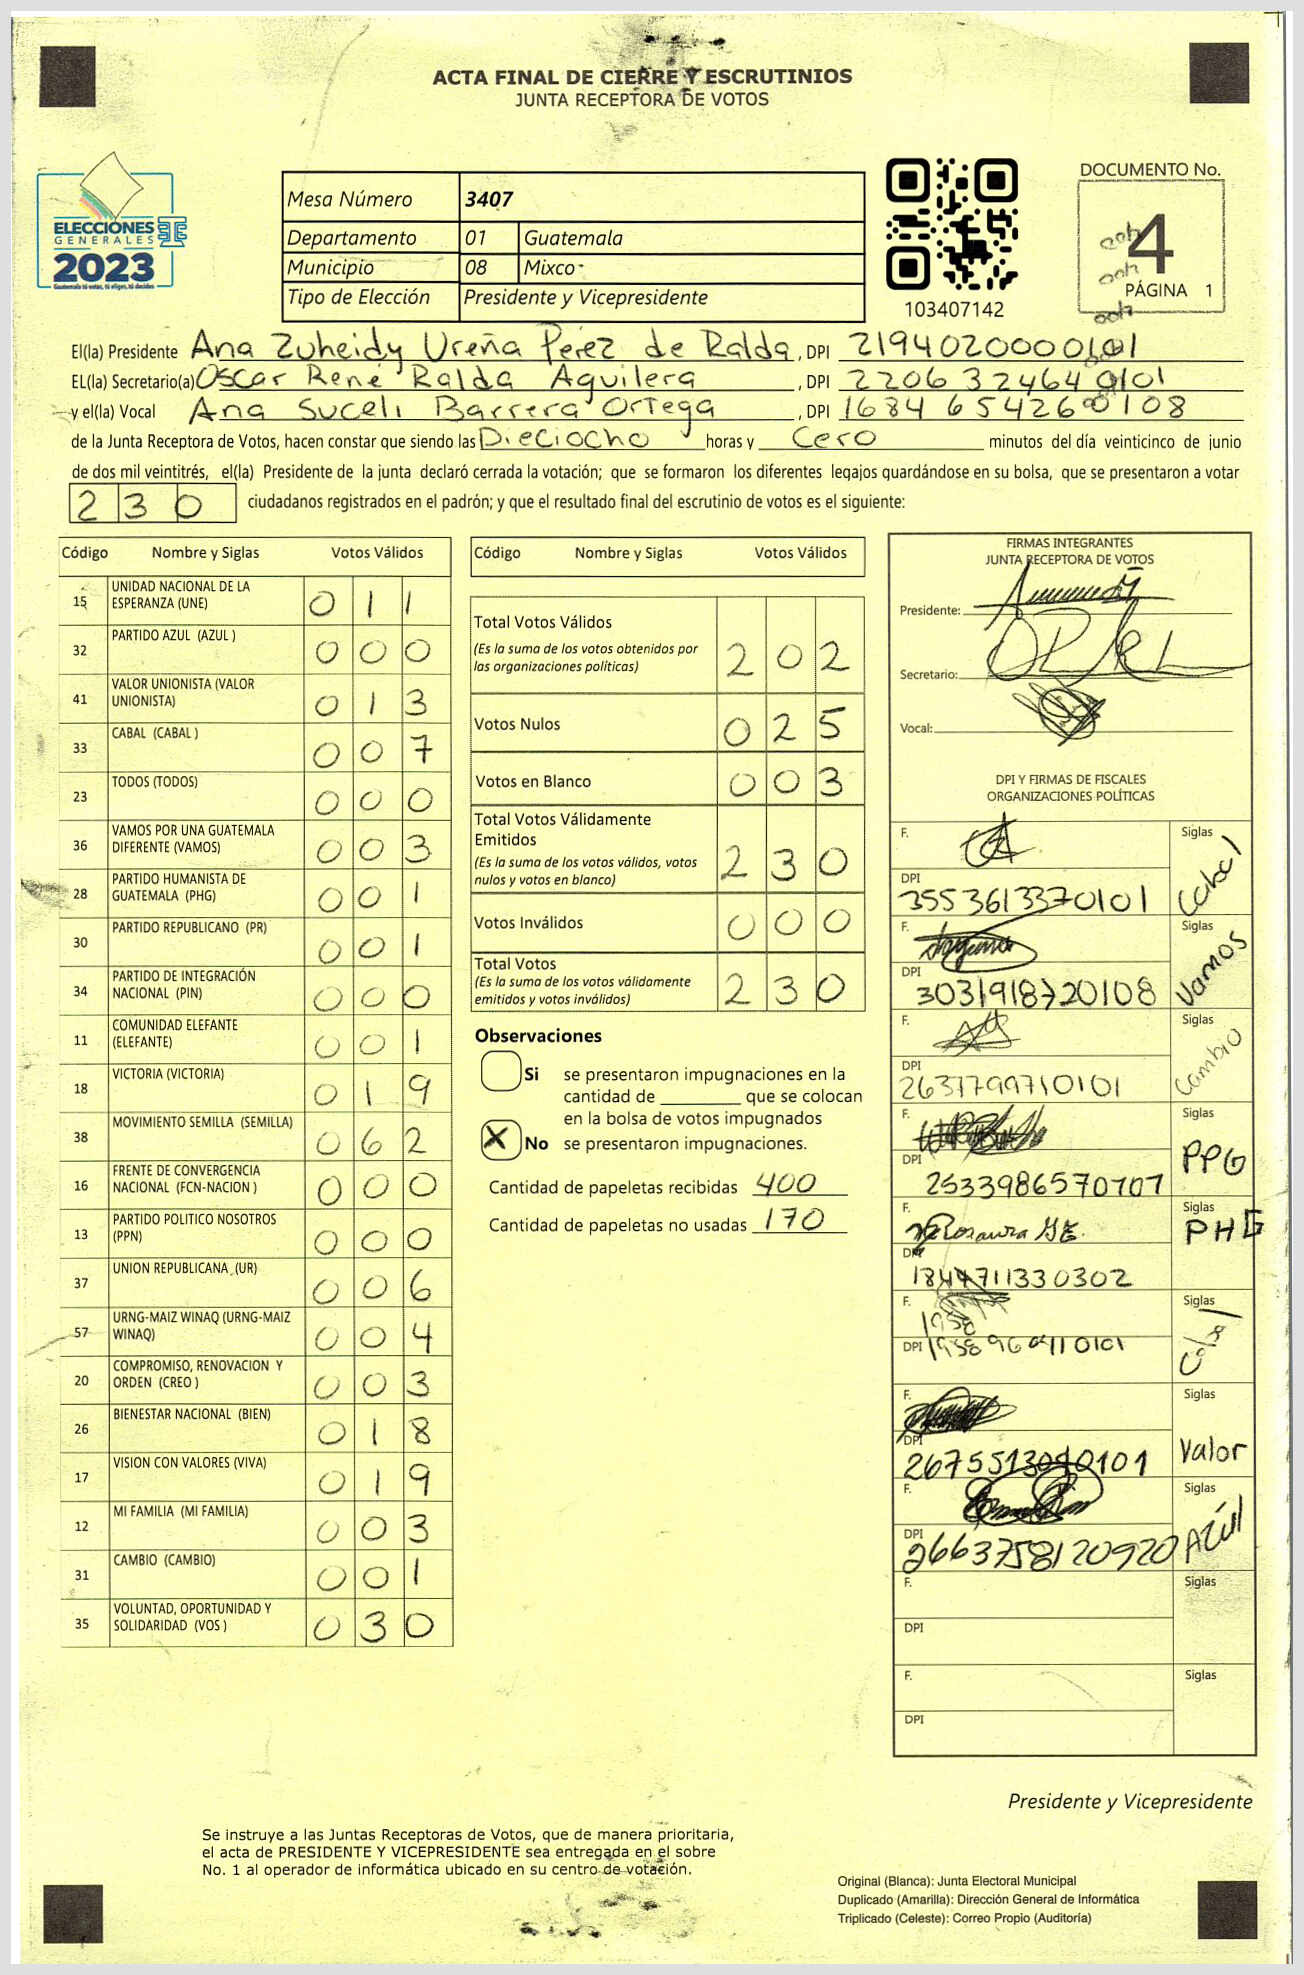 ACTA FINAL DE CIERRE Y ESCRUTINIOS
JUNTA RECEPTORA DE VOTOS
ELECCIONES
GENERALES
2023
Guatemala tú votas, tú eliges, tú decides
Mesa Número 3407
Departamento 01 Guatemala
Municipio 08 Mixco
Tipo de Elección Presidente y Vicepresidente
103407142
DOCUMENTO No.
4
PÁGINA 1
El(la) Presidente Ana Zuheidy Ureña Pérez de Ralda, DPI 2194020000101
EL(la) Secretario(a) Oscar René Ralda Aguilera, DPI 2206 32464 0101
y el(la) Vocal Ana Suceli Barrera Ortega, DPI 1684 65426 0108
de la Junta Receptora de Votos, hacen constar que siendo las Dieciocho horas y Cero minutos del día veinticinco de junio
de dos mil veintitrés, el(la) Presidente de la junta declaró cerrada la votación; que se formaron los diferentes legajos guardándose en su bolsa, que se presentaron a votar
230 ciudadanos registrados en el padrón; y que el resultado final del escrutinio de votos es el siguiente:
Código Nombre y Siglas Votos Válidos
15 UNIDAD NACIONAL DE LA ESPERANZA (UNE) 011
32 PARTIDO AZUL (AZUL ) 000
41 VALOR UNIONISTA (VALOR UNIONISTA) 013
33 CABAL (CABAL ) 007
23 TODOS (TODOS) 000
36 VAMOS POR UNA GUATEMALA DIFERENTE (VAMOS) 003
28 PARTIDO HUMANISTA DE GUATEMALA (PHG) 001
30 PARTIDO REPUBLICANO (PR) 001
34 PARTIDO DE INTEGRACIÓN NACIONAL (PIN) 000
11 COMUNIDAD ELEFANTE (ELEFANTE) 001
18 VICTORIA (VICTORIA) 019
38 MOVIMIENTO SEMILLA (SEMILLA) 062
16 FRENTE DE CONVERGENCIA NACIONAL (FCN-NACION ) 000
13 PARTIDO POLITICO NOSOTROS (PPN) 000
37 UNION REPUBLICANA (UR) 006
57 URNG-MAIZ WINAQ (URNG-MAIZ WINAQ) 004
20 COMPROMISO, RENOVACION Y ORDEN (CREO ) 003
26 BIENESTAR NACIONAL (BIEN) 018
17 VISION CON VALORES (VIVA) 019
12 MI FAMILIA (MI FAMILIA) 003
31 CAMBIO (CAMBIO) 001
35 VOLUNTAD, OPORTUNIDAD Y SOLIDARIDAD (VOS ) 030
Código Nombre y Siglas Votos Válidos
Total Votos Válidos 202
(Es la suma de los votos obtenidos por
las organizaciones políticas)
Votos Nulos 025
Votos en Blanco 003
Total Votos Válidamente
Emitidos 230
(Es la suma de los votos válidos, votos
nulos y votos en blanco)
Votos Inválidos 000
Total Votos 230
(Es la suma de los votos válidamente
emitidos y votos inválidos)
Observaciones
Si se presentaron impugnaciones en la
cantidad de ________ que se colocan
en la bolsa de votos impugnados
X No se presentaron impugnaciones.
Cantidad de papeletas recibidas 400
Cantidad de papeletas no usadas 170
FIRMAS INTEGRANTES
JUNTA RECEPTORA DE VOTOS
Presidente:
Secretario:
Vocal:
DPI Y FIRMAS DE FISCALES
ORGANIZACIONES POLÍTICAS
F. Siglas Cabal
DPI 3553613370101
F. Siglas Vamos
DPI 3031918720108
F. Siglas Cambio
DPI 2631799710101
F. Siglas PPG
DPI 2533986570101
F. Rosaura Siglas PHG
DPI 1844711330302
F. 1958 Siglas Cabal
DPI
F. Siglas Valor
DPI
F. Siglas AZÚl
DPI 2663758120920
F. Siglas
DPI
F. Siglas
DPI
Presidente y Vicepresidente
Se instruye a las Juntas Receptoras de Votos, que de manera prioritaria,
el acta de PRESIDENTE Y VICEPRESIDENTE sea entregada en el sobre
No. 1 al operador de informática ubicado en su centro de votación.
Original (Blanca): Junta Electoral Municipal
Duplicado (Amarilla): Dirección General de Informática
Triplicado (Celeste): Correo Propio (Auditoría)